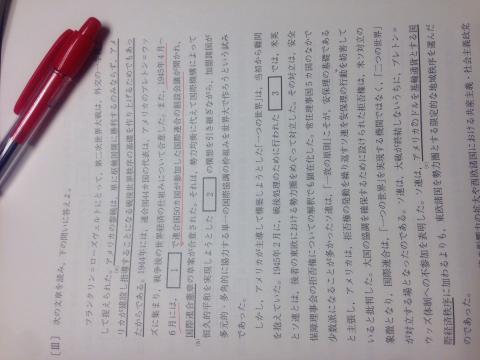 [Ⅲ] 次の文章を読み、下の問いに答えよ。
フランクリン＝ローズヴェルトにとって、第二次世界大戦は、外交の一
して捉えられた。アメリカの参戦は、単に枢軸国側に勝利するのみならず、アメ
リカが建設し指導することになる戦後世界秩序の基礎を打ち上げるためでもあっ
たからである。1944年には、連合国44カ国の代表は、アメリカのブレトン＝ウッ
ズに集まり、戦争後の世界経済の仕組みについて合意した。また、1945年4月～
6月には、 1 で連合国50カ国が参加した国際連合の創設会議が開かれ、
国際連合憲章の草案が合意された。それは、勢力均衡に代えて国際機構によって
恒久的平和を実現しようとした 2 の構想を引き継ぎながら、加盟諸国が
多元的・多角的に協力する単一の国際協調の枠組みを世界大で作ろうという試み
であった。
しかし、アメリカが主導して構築しようとした「一つの世界」は、当初から難問
を抱えていた。1945年2月に、戦後処理のために行われた 3 では、米英
とソ連とは、後者の東欧における勢力圏をめぐって対立した。その対立は、安全
保障理事会の拒否権についての解釈でも顕在化した。常任理事国5カ国のなかで
少数派になることが多かったソ連は、「一致の原則」こそが、安保理の基礎である
と主張し、アメリカは、拒否権の発動を繰り返すソ連を安保理の行動を妨害して
いると批判した。大国の協調を確保するために設けられた拒否権は、米ソ対立の
象徴となり、国際連合は、「一つの世界」を実現する機関ではなく、「二つの世界」
が対立する場となったのである。ソ連は、大戦が終結しないうちに、ブレトン＝
ウッズ体制への不参加を表明した。ソ連は、アメリカのドルを基軸通貨とする国
際経済秩序に加わるよりも、東欧諸国を勢力圏とする固定的な地域秩序を選んだ
のであった。
の拡大や西欧諸国における共産主義・社会主義政党